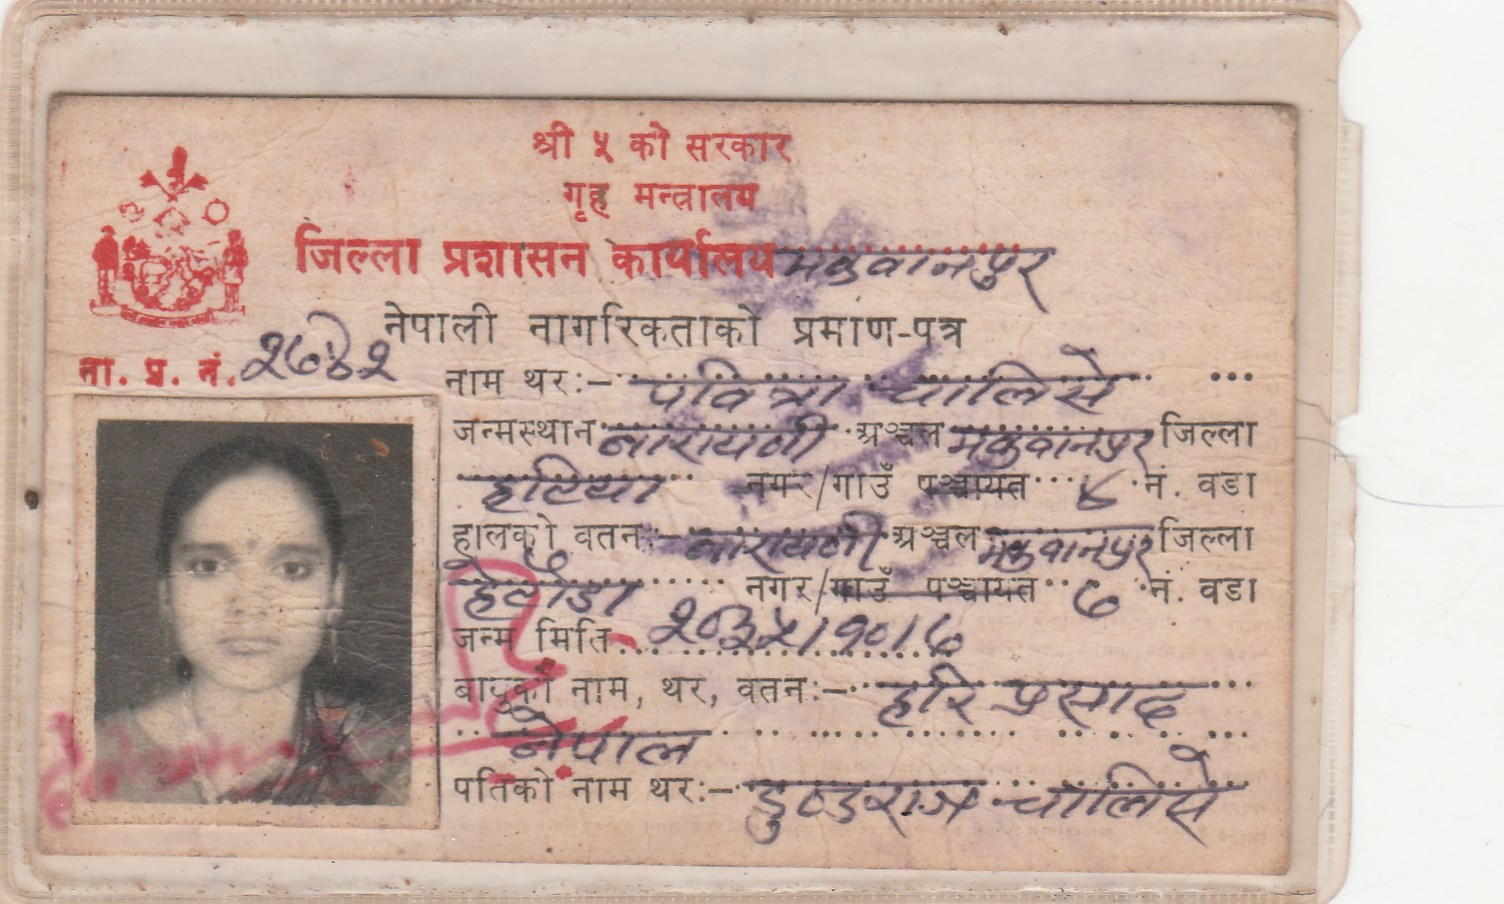 श्री ५ को सरकार
गृह मन्त्रालय
जिल्ला प्रशासन कार्यालय मकवानपुर
नेपाली नागरिकताको प्रमाण-पत्र
ना. प्र. नं.
नाम थर:- पवित्रा चालिसे
जन्मस्थान नारायणी अञ्चल मकवानपुर जिल्ला
हटिया नगर/गाउँ पञ्चायत ४ नं. वडा
हालको वतन:- नारायणी अञ्चल मकवानपुर जिल्ला
हेटौडा नगर/गाउँ पञ्चायत ७ नं. वडा
जन्म मिति २०३५।१०।७
बाबुको नाम, थर, वतन:- हरि प्रसाद
नेपाल
पतिको नाम थर:- डुण्डराज चालिसे